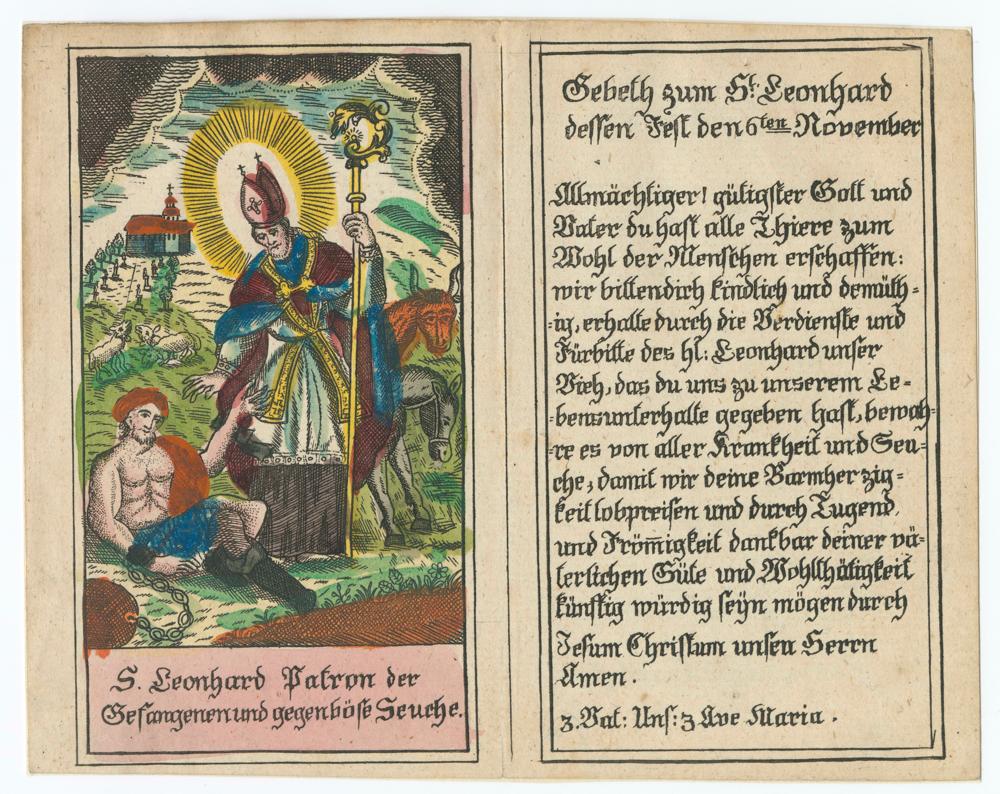 S. Leonhard Patron der
Gefangenen und gegen böse Seuche.
Gebeth zum St. Leonhard
dessen Fest den 6ten November
Allmächtiger! gütigster Gott und
Vater du hast alle Thiere zum
Wohl der Menschen erschaffen:
wir bitten dich kindlich und demüth=
=ig, erhalte durch die Verdienste und
Fürbitte des hl: Leonhard unser
Vieh, das du uns zu unserem Le=
=bensunterhalte gegeben hast, bewah=
=re es von aller Krankheit und Seu=
che, damit wir deine Barmherzig=
keit lobpreisen und durch Tugend,
und Frömigkeit dankbar deiner vä=
terlichen Güte und Wohlthätigkeit
künftig würdig seÿn mögen durch
Jesum Christum unsen Herrn
Amen.
3. Vat: Uns: 3 Ave Maria.